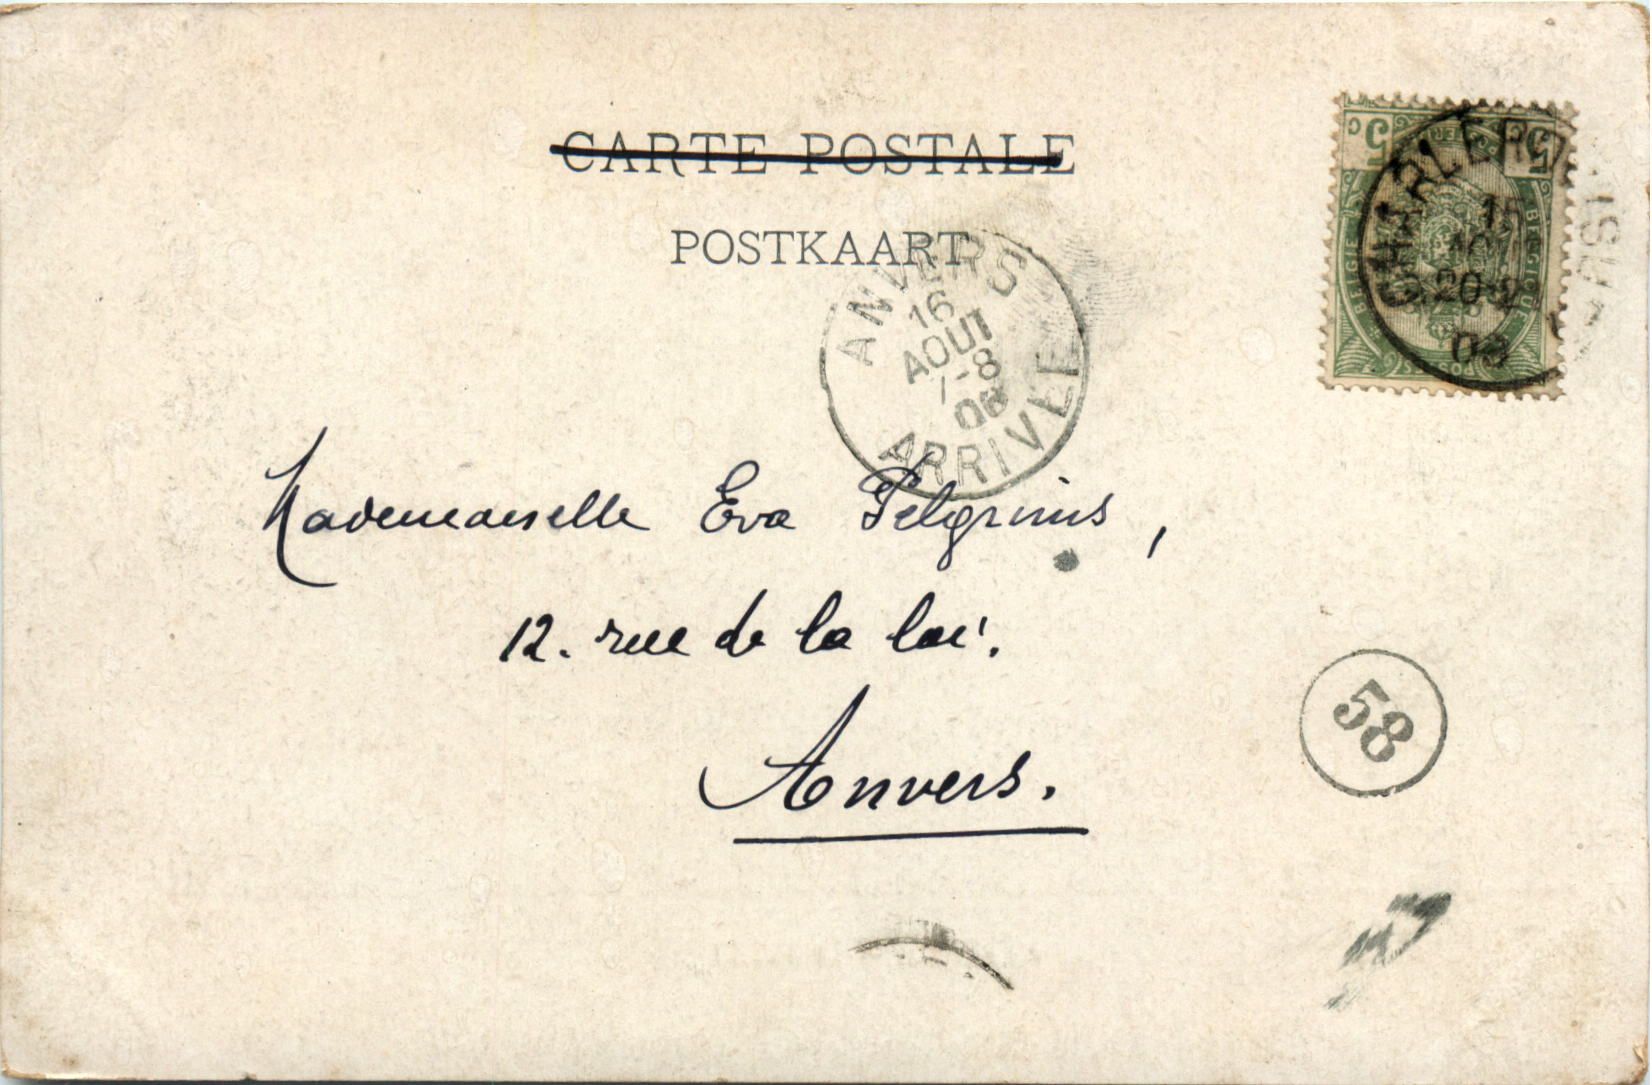 CARTE POSTALE
POSTKAART
ANVERS
16
AOUT
7-8
08
ARRIVÉE
5 5
BELGIE BELGIQUE
POSTES
CHARLEROI
15
AOUT
20-
08
Mademoiselle Eva Pelgrims,
12. rue de la loi.
Anvers.
58